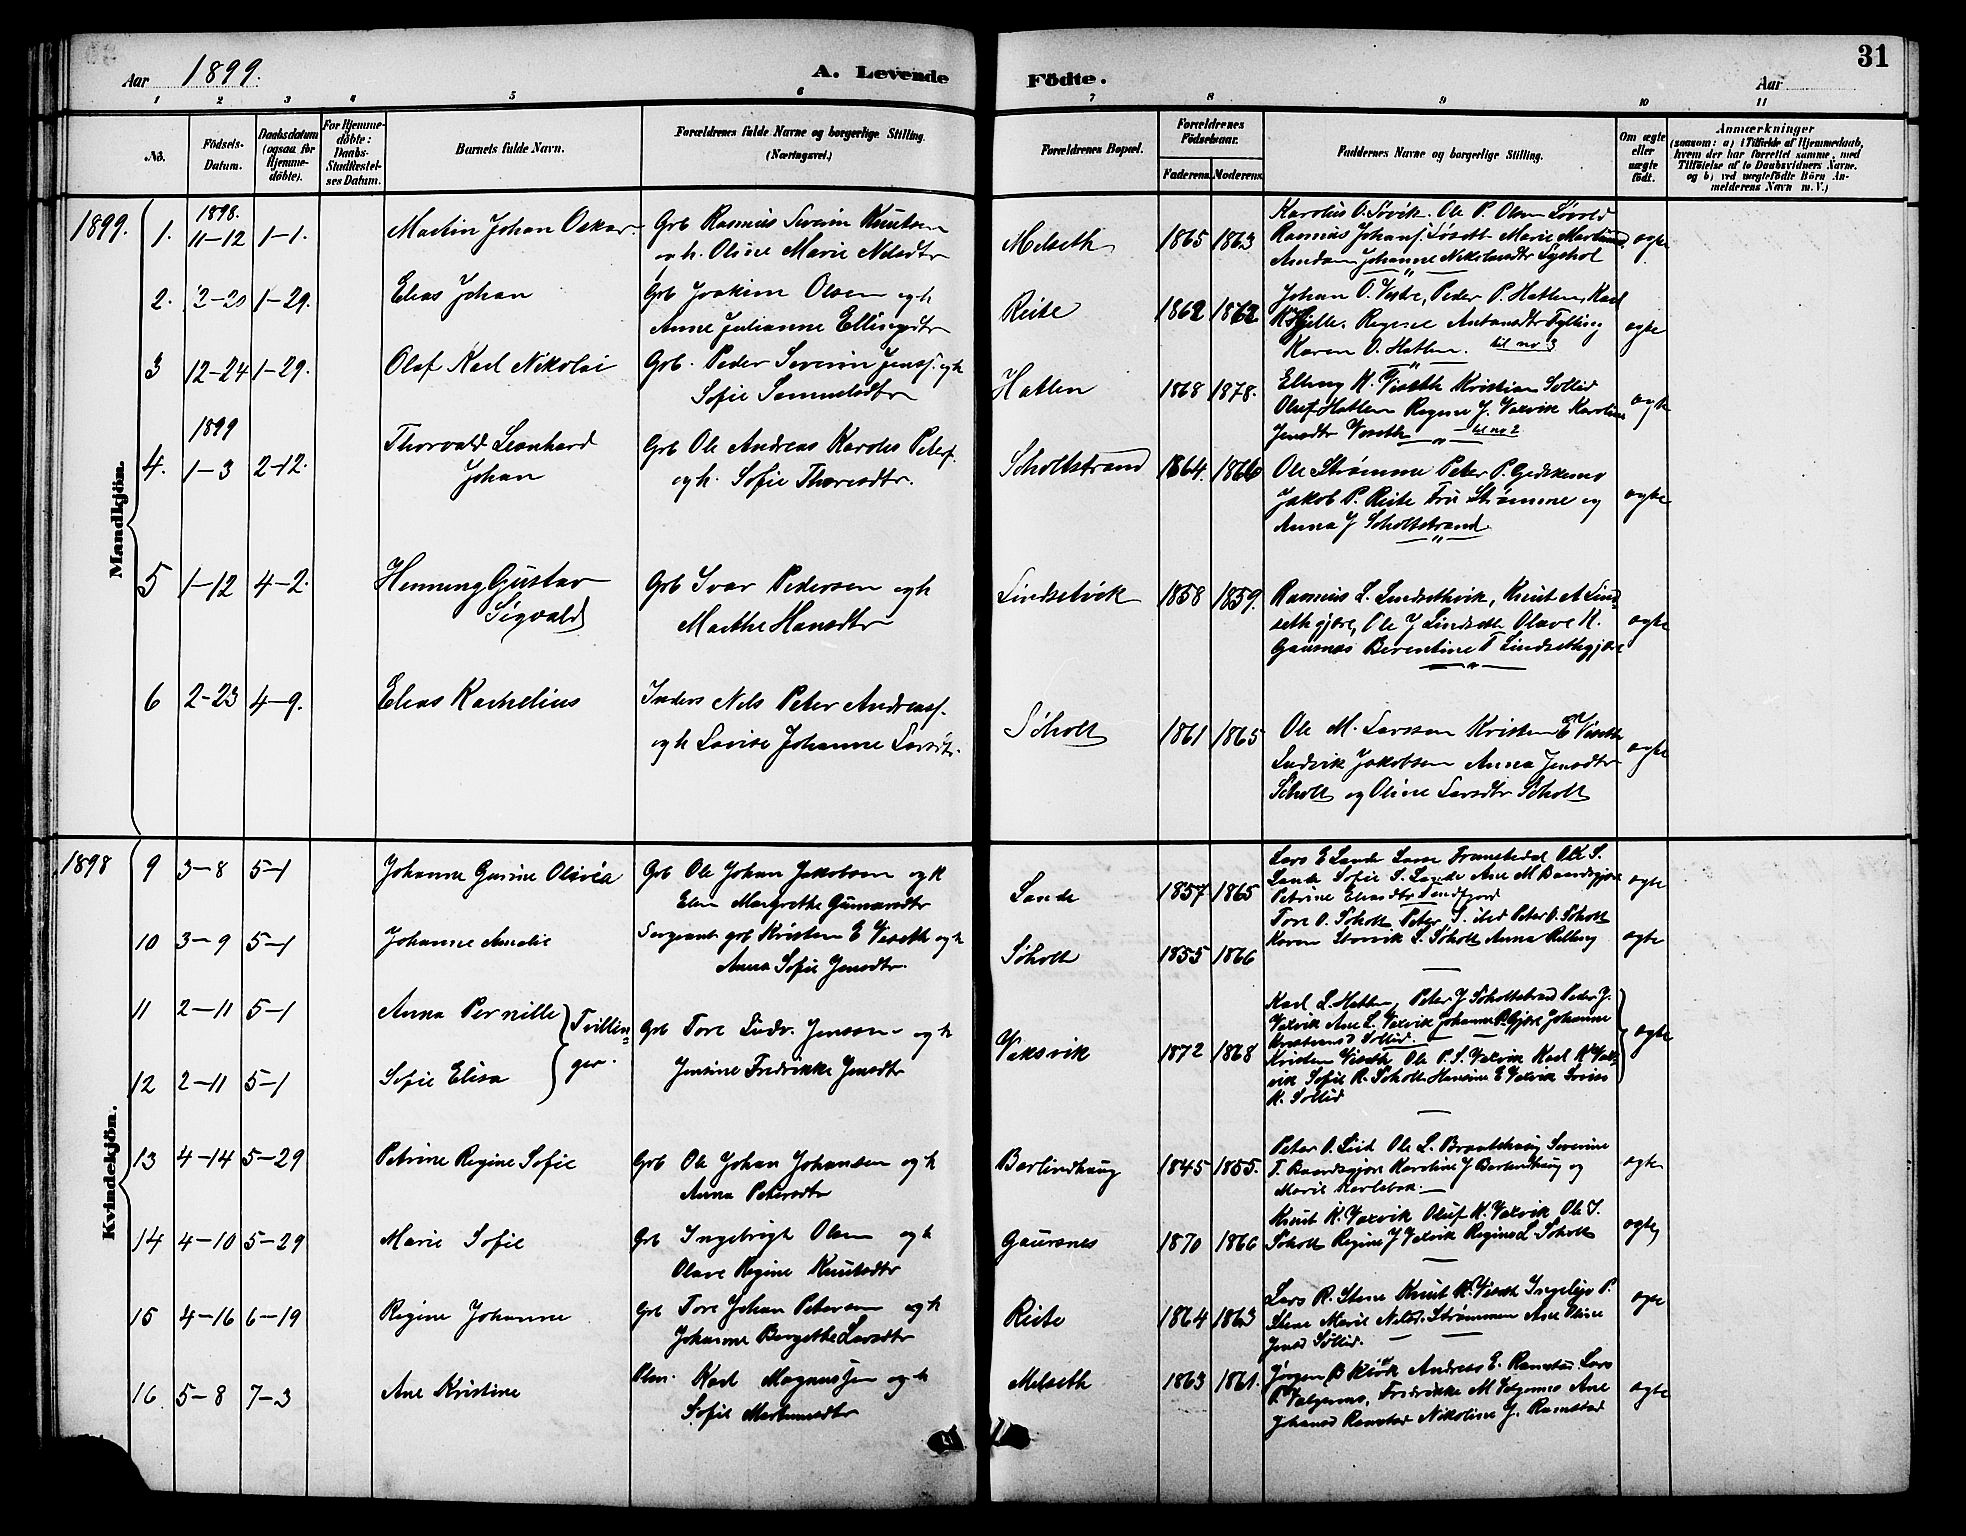 Aar 1899. A. Levende Födte. Aar 31
1 2 3 4 5 6 7 8 9 10 11
No. Födsels-Datum. Daabsdatum (ogsaa for Hjemmedöbte). For Hjemmedöbte: Daabs-Stadfæstelses Datum. Barnets fulde Navn. Forældrenes fulde Navne og borgerlige Stilling. (Næringsvei.) Forældrenes Bopæl. Forældrenes Födselsaar. Faderens. Moderens. Faddernes Navne og borgerlige Stilling. Om ægte eller uægte födt. Anmærkninger (saasom: a) i Tilfælde af Hjemmedaab, hvem der har forrettet samme, med Tilföielse af to Daabsvidners Navne, og b) ved uægtefödte Börn Anmelderens Navn m. V.)
Mandkjön.
1899. 1. 1898. 11-12 1-1. Martin Johan Oskar. Grb Rasmus Severin Knutsen
og h. Oline Marie Nilsdtr Melseth 1865 1863
Karolus O. Søvik. Ole P. Olsen Løvold
Rasmus Johans. Løseth Marie Martines
Amdam Johanne Nikolaisdtr Sjøholt ægte
2. 12-20 1-29. Elias Johan Grb Joakim Olsen og h
Anne Julianne Ellingsdtr Reite 1862 1862
Johan O. Vestre, Peder P. Hatlen, Karl
K. Hjelle. Regine Antonsdtr Fylling
Karen O. Hatlen. til no 3 ægte
3 12-24 1-29. Olaf Karl Nikolai Grb. Peder Severin Jenss. og h
Sofie Samuelsdtr Hatlen 1868 1878.
Elling K. Viseth Kristian Sollid
Oluf Hatlen Regine J. Vaxvik Karoline
Jensdtr Viseth til no 2 ægte
4. 1899 1-3 2-12. Thorvald Leonhard
Johan Grb Ole Andreas Karolus Peters.
og h. Sofie Thoresdtr. Søholtstrand 1864. 1866
Ole Strømme Peter P. Gjedskemo
Jakob P. Reite Fru Strømme og
Anna J Søholtstrand. ægte
5 1-12 4-2. Henning Gustav
Sigvald Grb Ivar Pedersen og h
Marthe Hansdtr Lindsetvik 1858 1859.
Rasmus L. Lindsethvik, Knut A Lind=
sethgjære, Ole J Lindseth Olave K.
Gausnes Berentine T Lindsethgjære ægte
6 2-23 4-9. Elias Kornelius Inders Nils Peter Andreass.
og h Lovise Johanne Larsdtr. Søholt 1861 1865
Ole M. Larssen Kristen E Viseth
Ludvik Jakobsen Anna Jensdtr
Søholt og Oline Larsdtr Søholt ægte
Kvindekjön.
1898 9 3-8 5-1 Johanne Gurine Olivia Grb Ole Johan Jakobsen og h
Elen Margrethe Gunnarsdtr Sande 1857 1865
Lars E Sande Lasse Framstedal Ole S.
Sande Sofie S. Sande Ane M Baardsgjære
Petrine Eliasdtr Tandfjord ægte
10 3-9 5-1 Johanne Amalie Sergeant grb Kristen E Viseth og h
Anna Sofie Jensdtr. Søholt 1855 1866
Tore O. Søholt Peter S. ibid Peter O. Søholt
Karen Storvik S. Søholt Anna Relling ægte
11 2-11 5-1 Anna Pernille Tvillin=
12 2-11 5-1 Sofie Elisa ger. Grb Tore Ludv. Jenssen og h
Jensine Fredrikke Jensdtr Vaksvik 1872 1868
Karl L. Hatlen, Peter J Søholtstrand Peder J.
Vaxvik Ane L. Vaxvik Johanne P. Gjære Johanne
Kristensd Sollid.
Kristen Viseth Ole P. S. Vaxvik Karl K Vaks
vik Sofie R. Søholt Hansine E Vaxvik Lovise
K. Sollid ægte
13 4-14 5-29 Petrine Regine Sofie Grb Ole Johan Johansen og h
Anna Petersdtr Barlindhaug 1845 1855.
Peter O. Lied Ole L. Brautehaug Severine
T. Baardsgjære Karoline J Barlindhaug og
Marie Karlsbak. ægte
14 4-10 5-29 Marie Sofie Grb Ingebrigt Olsen og h
Olave Regine Knutsdtr Gausnes 1870 1866
Knut K. Vaxvik Oluf K. Vaxvik Ole T.
Søholt Regine J Vaxvik Regine L Søholt ægte
15 4-16 6-19 Regine Johanne Grb Tore Johan Petersen og h
Johanne Bergethe Larsdtr Reite 1864 1863
Lars R. Stene Knut K. Viseth Ingeleiv P.
Stene Marie Nilsd. Strømmen Ane Oline
Jensd Sollid. ægte
16 5-8 7-3 Ane Kristine Plm. Karl Magnussen og h
Sofie Martinusdtr Melseth 1863 1861.
Jørgen B Kirk Andreas E. Ramstad Lars
P. Valgermo, Fredrikke M Valgermo Ane
Johansd Ramstad Nikoline G. Ramstad ægte